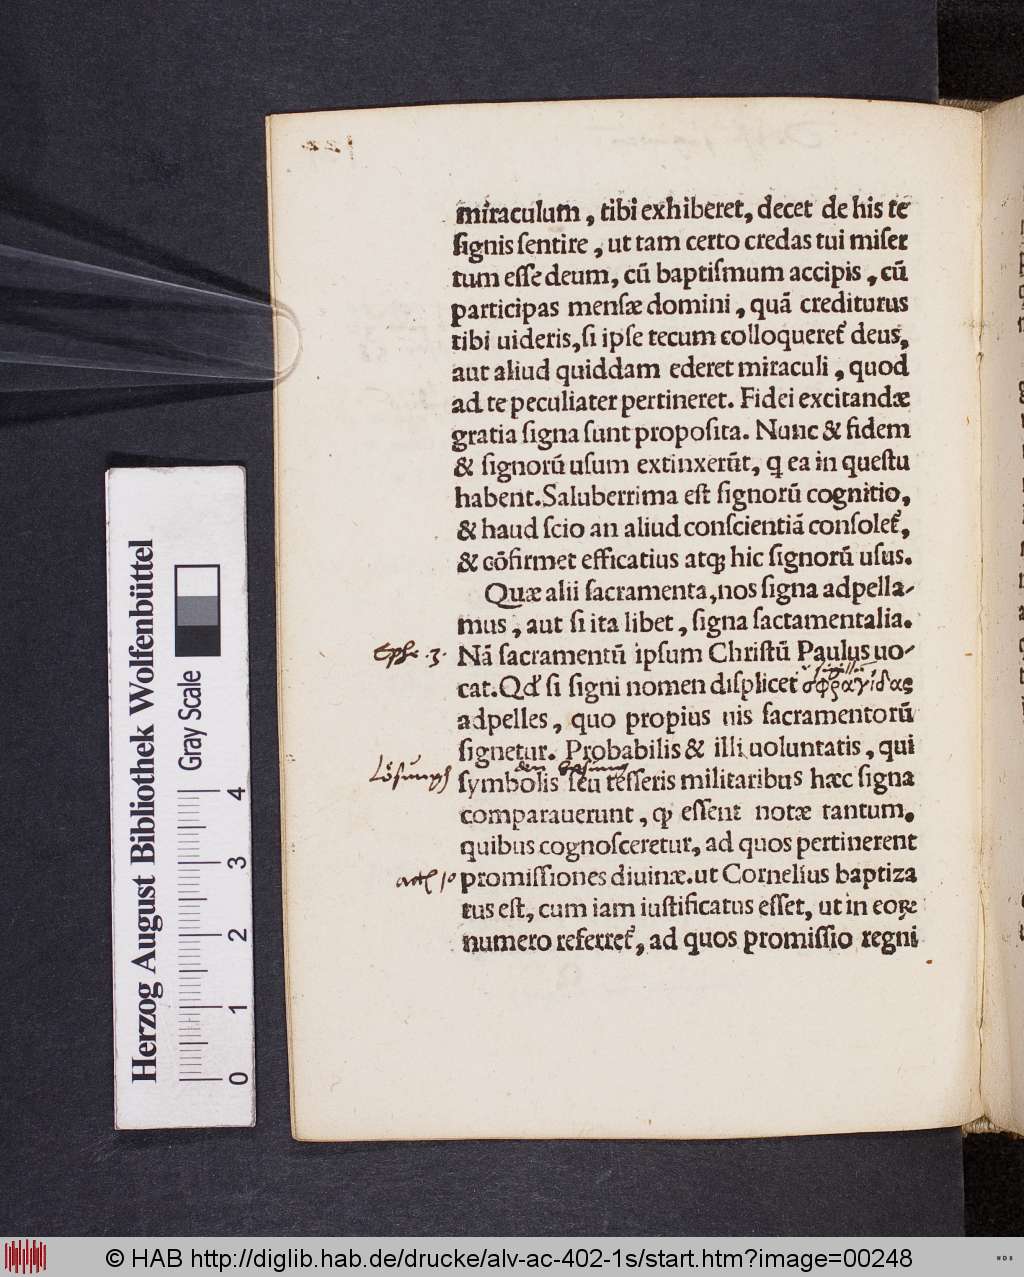 miraculum, tibi exhiberet, decet de his te
signis sentire, ut tam certo credas tui miser
tum esse deum, cū baptismum accipis, cū
participas mensæ domini, quā crediturus
tibi uideris, si ipse tecum colloqueret᷑ deus,
aut aliud quiddam ederet miraculi, quod
ad te peculiater pertineret. Fidei excitandæ
gratia signa sunt proposita. Nunc & fidem
& signorū usum extinxerūt, q ea in questu
habent. Saluberrima est signorū cognitio,
& haud scio an aliud conscientiā consolet᷑,
& cōfirmet efficatius atqꝫ hic signorū usus.
Quæ alii sacramenta, nos signa adpella-
mus, aut si ita libet, signa sactamentalia.
Ephe. 3.
Nā sacramentū ipsum Christū Paulus uo-
cat. Qd si signi nomen displicet σφραγίδας
adpelles, quo propius uis sacramentorū
signetur. Probabilis & illi uoluntatis, qui
symbolis seu tesseris militaribus hæc signa
comparauerunt, ꝙ essent notæ tantum.
quibus cognosceretur, ad quos pertinerent
act 10
promissiones diuinæ. ut Cornelius baptiza
tus est, cum iam iustificatus esset, ut in eoꝝ
numero referret᷑, ad quos promissio regni
Herzog August Bibliothek Wolfenbüttel
Gray Scale
0 1 2 3 4
© HAB http://diglib.hab.de/drucke/alv-ac-402-1s/start.htm?image=00248